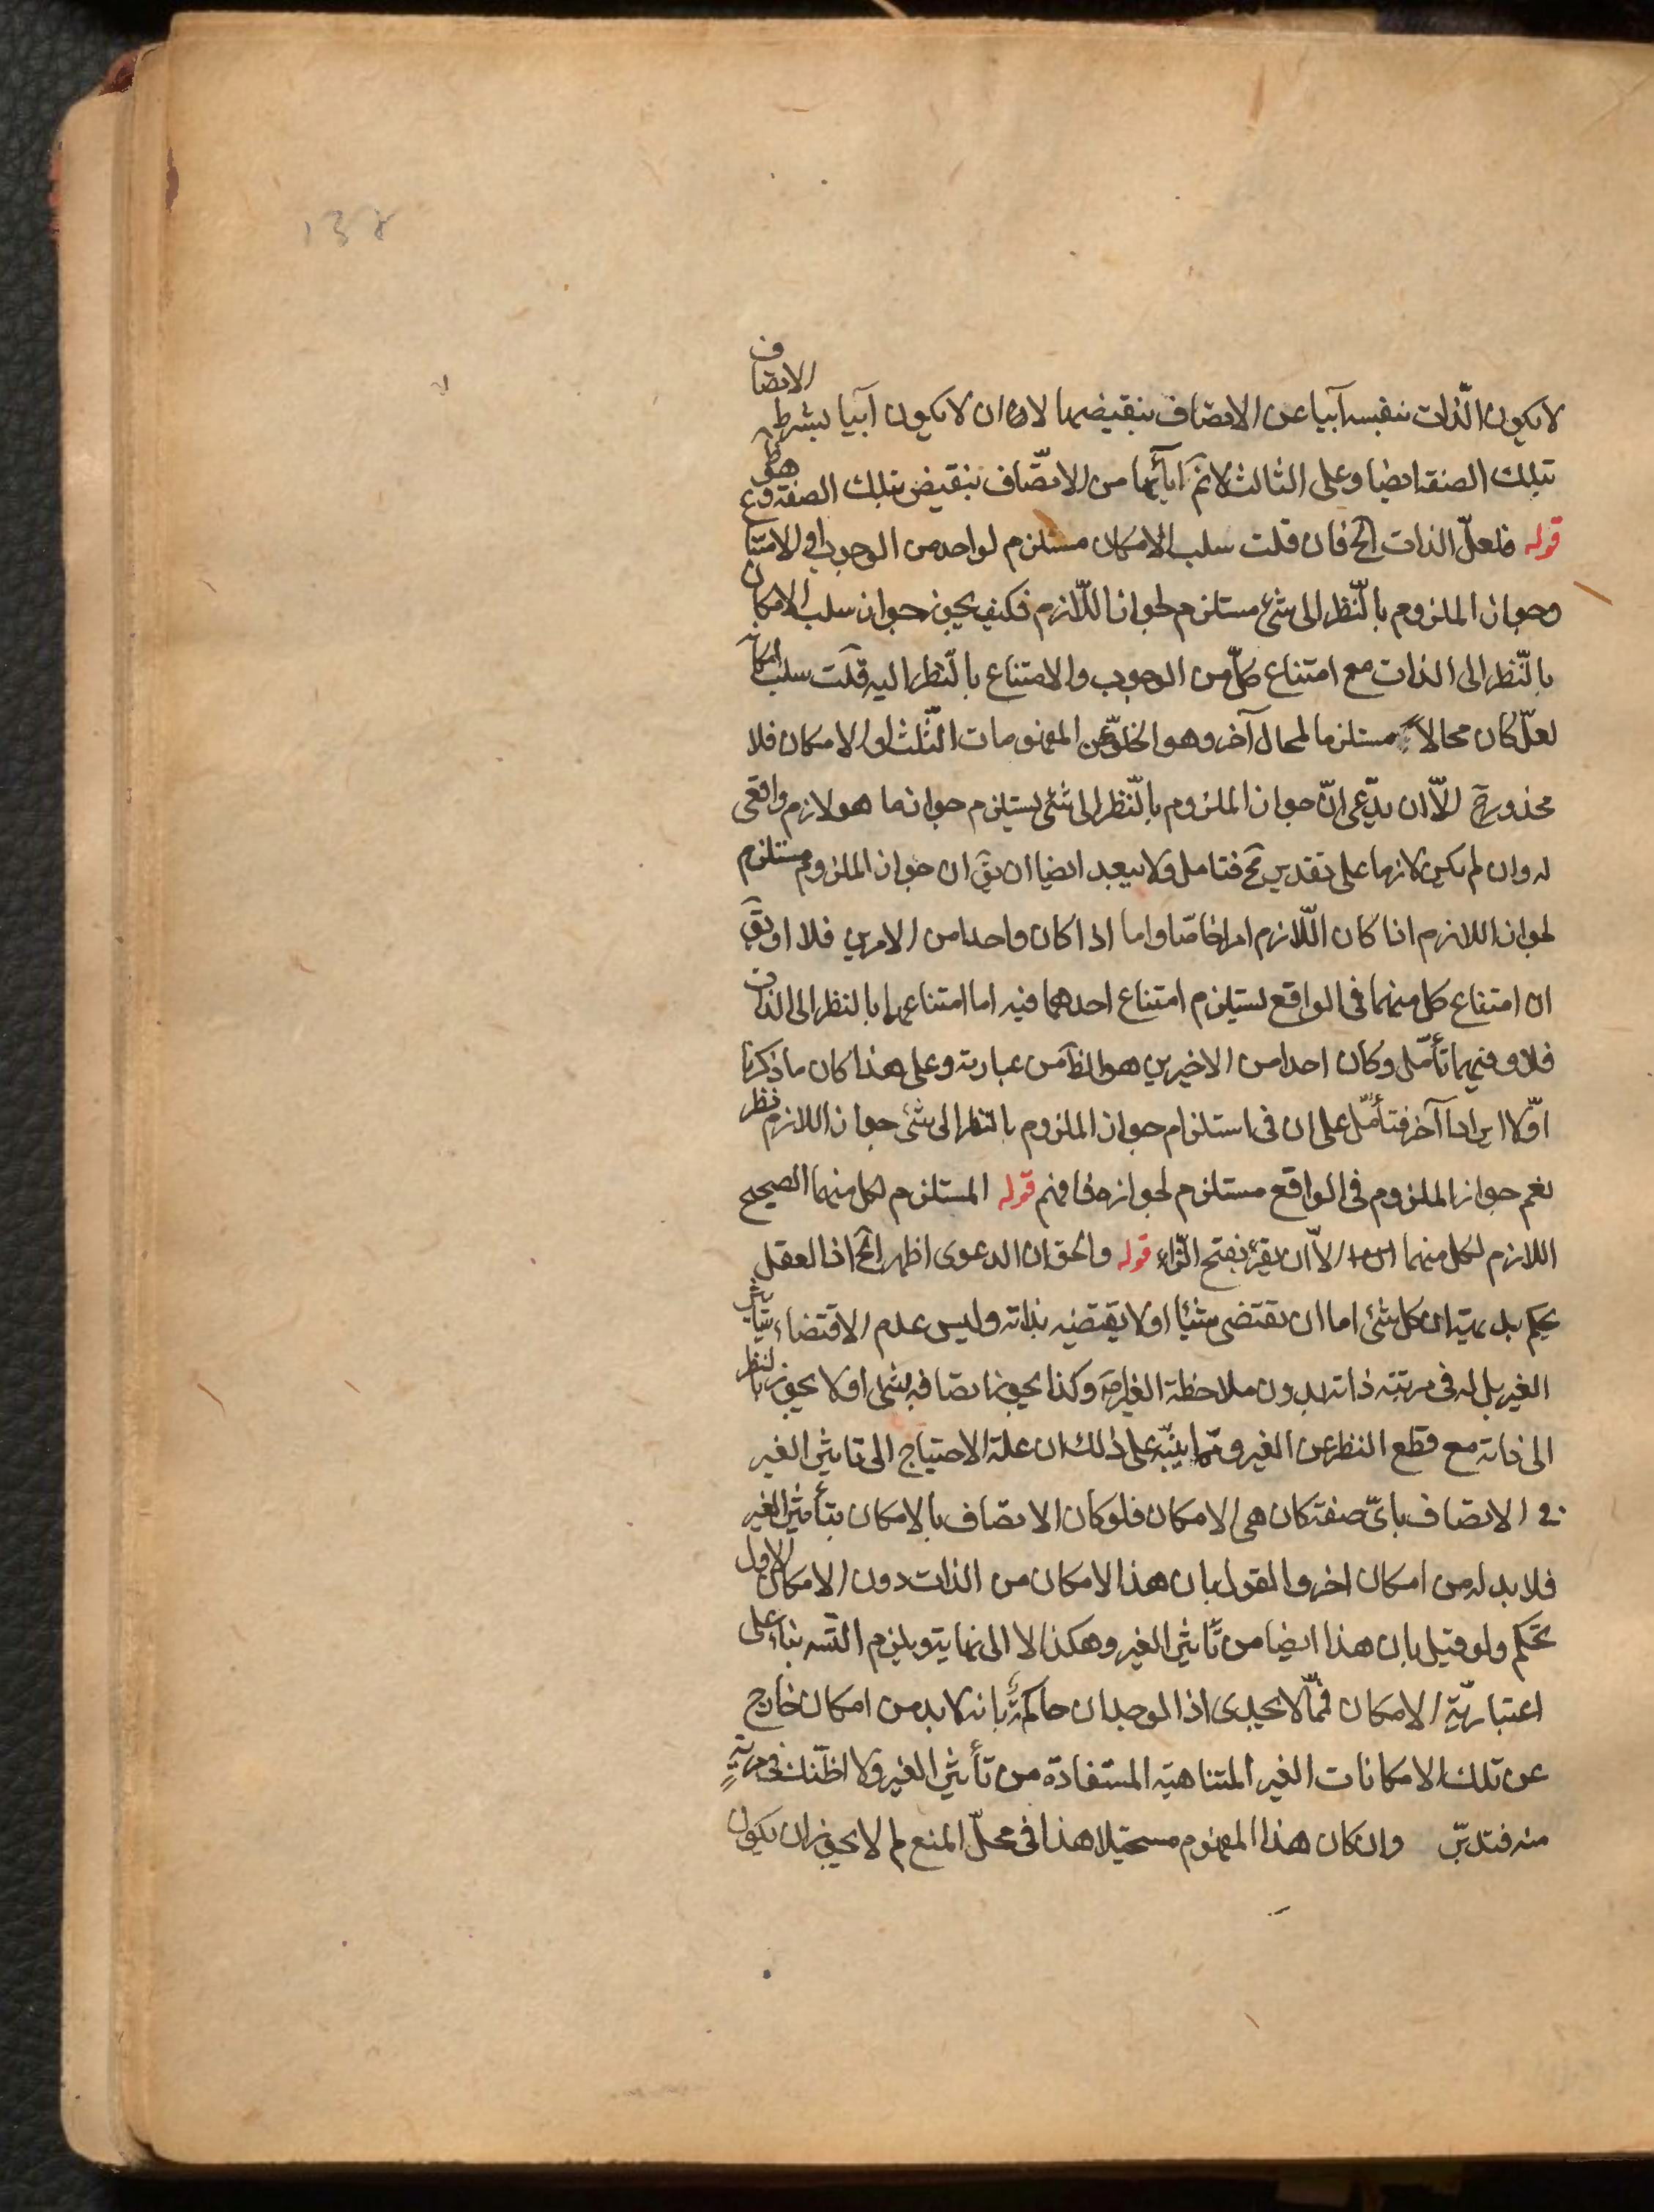 138
لا يكون الذات بنفسه آبيا عن الاتصاف بنقيضها لا ان لا يكون آبيا بشرط الاتصاف
بتلك الصفة ايضا وعلى الثالث لانم ابائها من الاتّصاف بنقيض تلك الصفة
قوله فلعلّ الذات الخ فان قلت سلب الامكان مستلزم لواحد من الوجوب او الامتناع
وجواز الملزوم بالنّظر الى شئ مستلزم لجواز اللّازم فكيف يجوز جواز سلب الامكان
بالنّظر الى الذات مع امتناع كلّ من الوجوب والامتناع بالنّظر اليه قلت سلب امكانه
لعلّ كان محالا مستلزما لمحال آخر وهو الخلوّ عن المفهومات الثّلث او الامكان فلا
محذور ح الّا ان يدّعى انّ جواز الملزوم بالنّظر الى شئ يستلزم جواز ما هو لازم واقعى
له وان لم يكن لازما على تقدير مح فتامل ولا يبعد ايضا ان يق ان جواز الملزوم مستلزم
لجواز اللازم اذا كان اللّازم امرا خاصّا واما اذا كان واحدا من الامرين فلا او يق
ان امتناع كل منهما فى الواقع يستلزم امتناع احدهما فيه اما امتناعهما بالنظر الى الذات
فلا وفيهما تأمّل وكان احدا من الاخيرين هو الظ من عبارته وعلى هذا كان ما ذكرنا
اوّلا ايرادا آخر فتأمّل على ان فى استلزام جواز الملزوم بالنظر الى شئ جواز اللازم نظر
نعم جواز الملزوم فى الواقع مستلزم لجوازه فافهم قوله المستلزم لكل منهما الصحيح
اللازم لكل منهما الّا ان يقرء بفتح الزاء قوله والحق ان الدعوى اظهر الخ اذ العقل
يحكم بديهة ان كل شئ اما ان يقتضى شيئا او لا يقتضيه بذاته وليس عدم الاقتضاء بتاثير
الغير بل له فى مرتبة ذاته بدون ملاحظة الغير وكذا يجوز اتصافه بشئ او لا يجوز بالنظر
الى ذاته مع قطع النظر عن الغير وممّا ينبّه على ذلك ان علة الاحتياج الى تاثير الغير
فى الاتصاف باىّ صفة كان هى الامكان فلو كان الاتصاف بالامكان بتأثير الغير
فلا بد له من امكان اخر والقول بان هذا الامكان من الذات دون الامكان الاول
تحكم ولو قيل بان هذا ايضا من تأثير الغير وهكذا لا الى نهاية ويلزم التسه بناء على
اعتباريّة الامكان فمما لا يجدى اذ الوجدان حاكم بانه لا بد من امكان خارج
عن تلك الامكانات الغير المتناهية المستفادة من تأثير الغير ولا اظنّك فى مرية
منه فتدبّر وان كان هذا المفهوم مستحيلا هذا فى محلّ المنع لم لا يجوز ان يكون